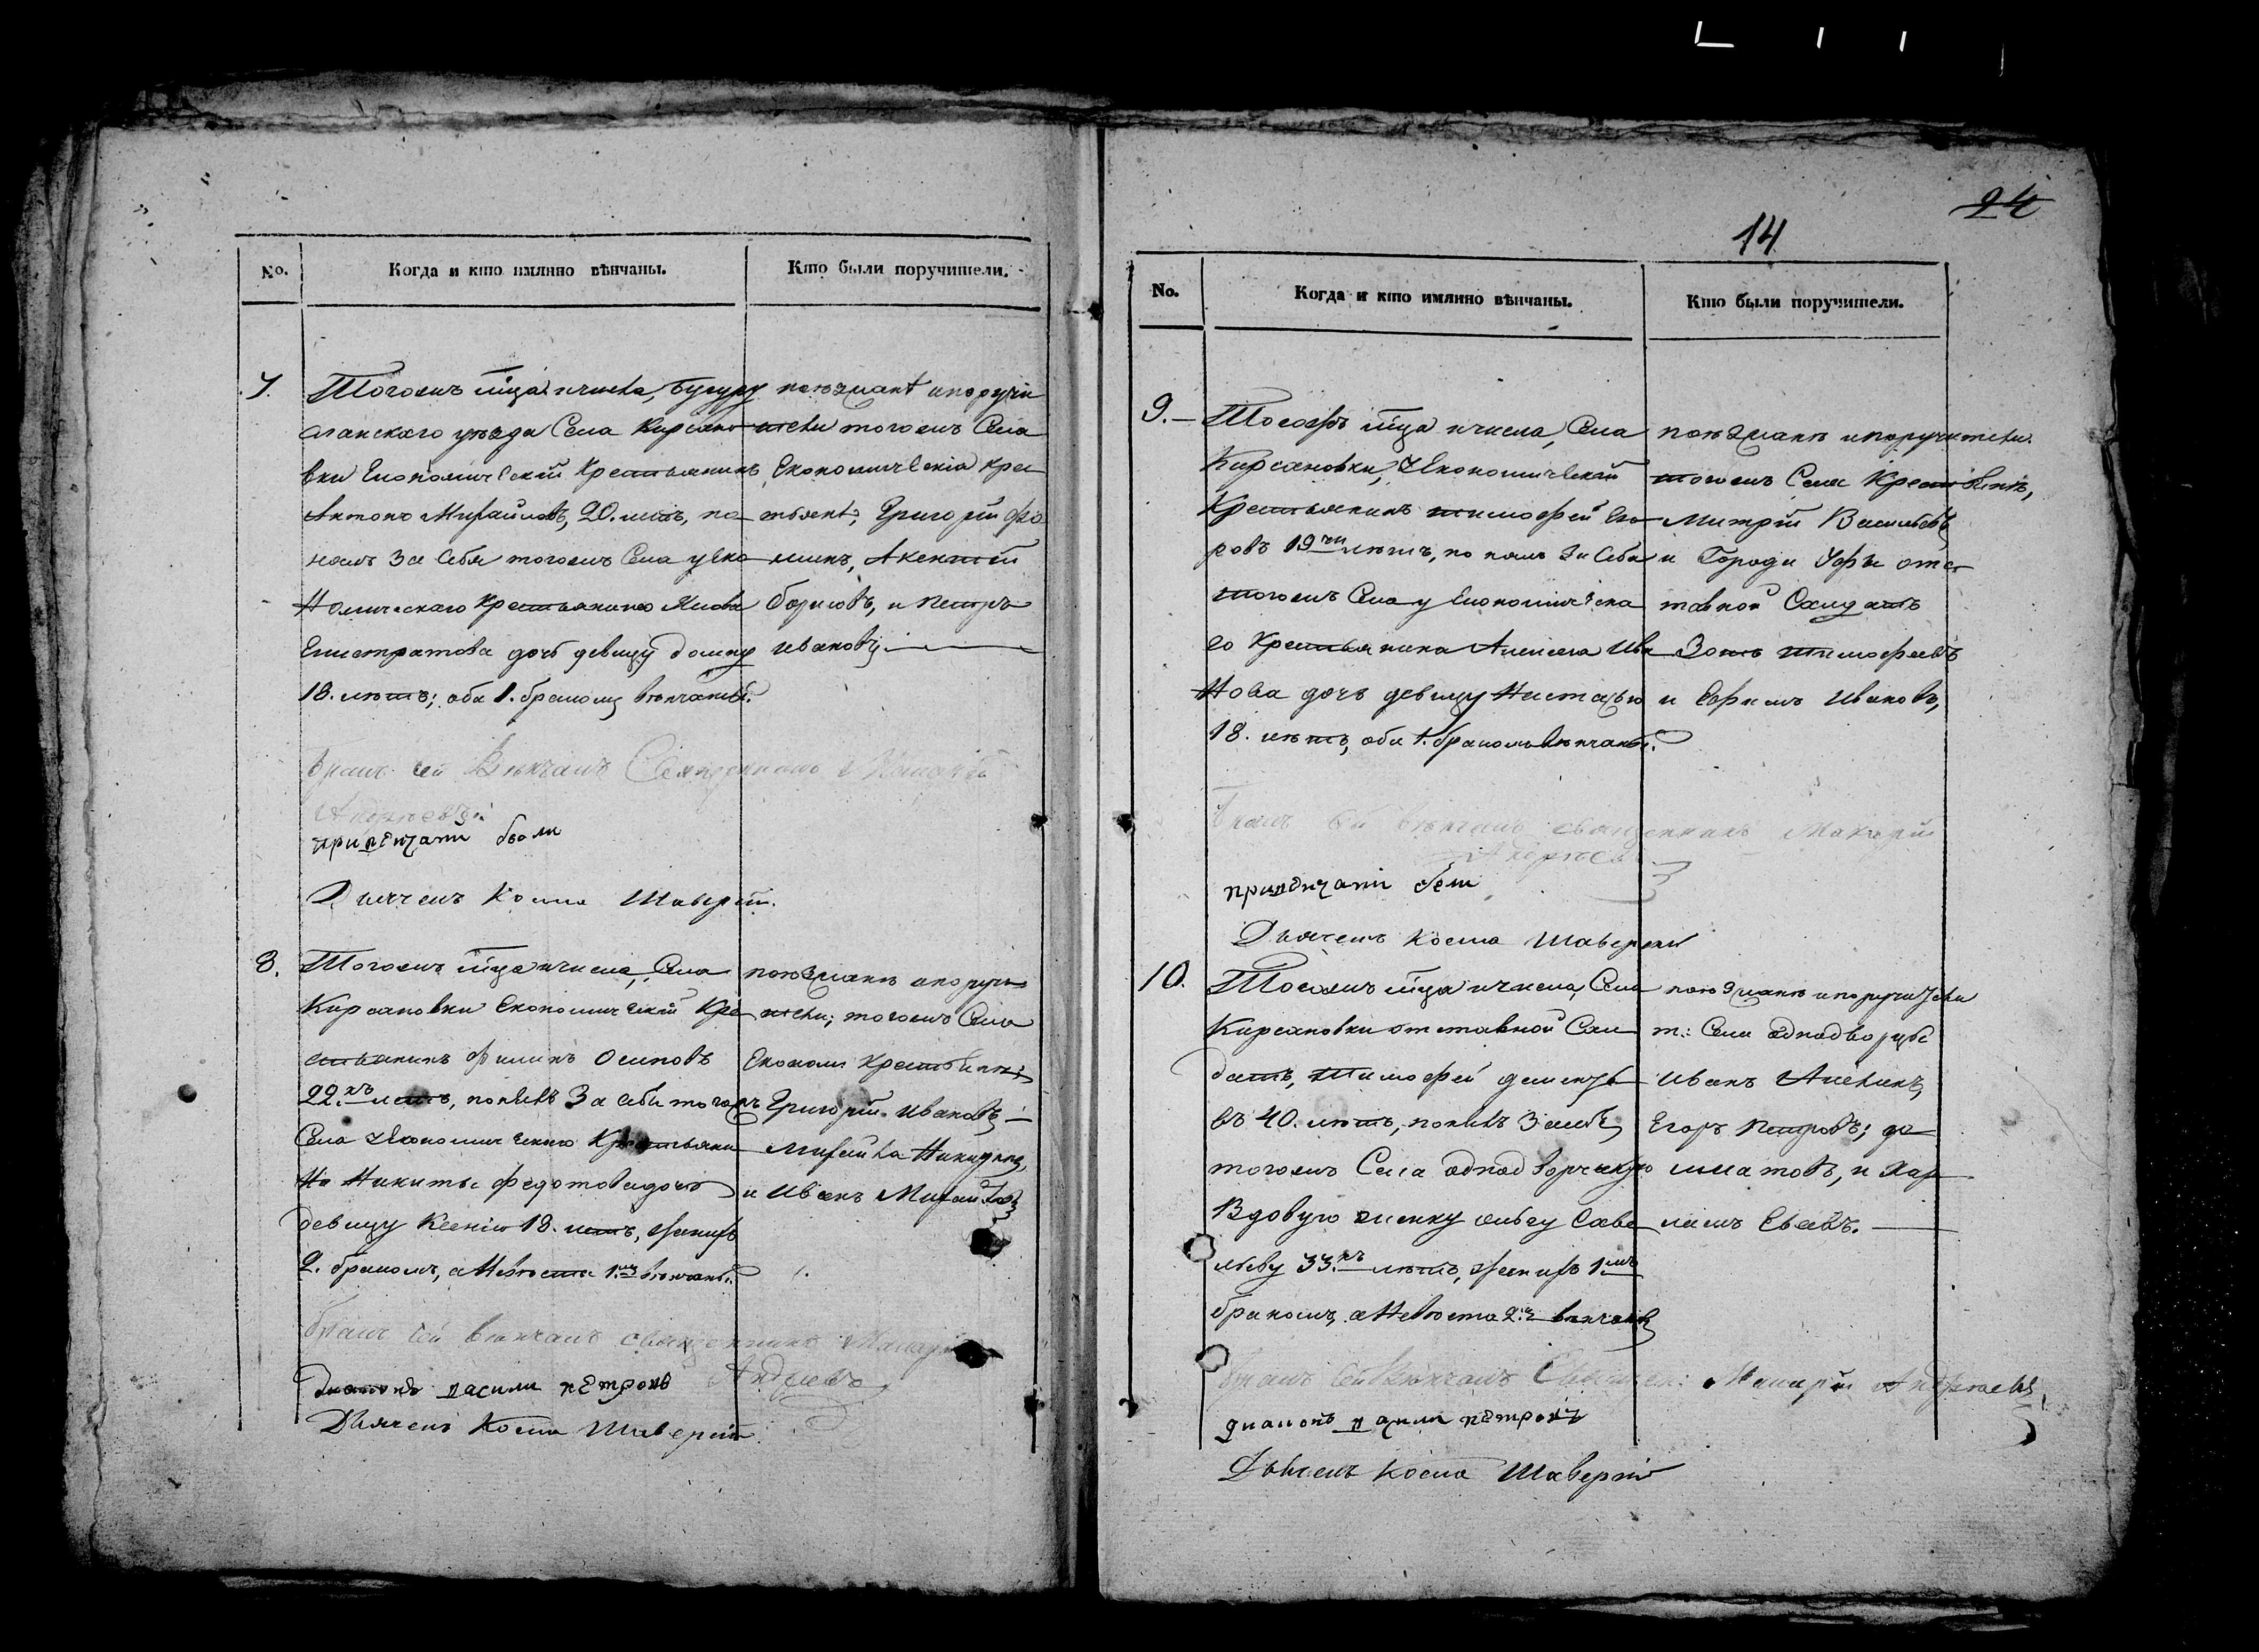 24
14
No. Когда и кто имянно вѣнчаны. Кто были поручители.
7. Тогожъ м҃ца и числа, Бугуру
сланскаго уѣзда Села Кирсано
вки Економическій Крестьянинъ
Антонъ Михайловъ, 20. летъ, по
нялъ За Себя тогожъ Села у Еко
номическаго Крестьянина
Евистратова дочь девицу Домну
18. лѣтъ; оба 1. бракомъ вѣнчаны.
поѣзжанѣ и поручи
тели тогожъ Села
Економическія кре
стьянѣ, Григорій Фо
минъ,
Борисовъ, и Петръ
Ивановъ
Бракъ сей Вѣнчалъ Священникъ Макарій
Андреевъ
причѣтъчати были
Дьячекъ Косма
8. Тогожъ м҃ца и числа, Села
Кирсановки Економическій Кре
стьянинъ Филипъ Осиповъ
22.хъ летъ, понялъ За себя тогожъ
Села у Економическаго Крестьяни
на Никиты Федотова дочь
девицу Ксенію 18. летъ, женихъ
2. бракомъ, а Невѣста 1.мъ вѣнчаны.
поѣзжанѣ и поручи
тели; тогожъ Села
Економ Крестьянѣ
Григорій Ивановъ
Михайла Никитинъ,
и Иванъ Михайловъ
Бракъ сей вѣнчалъ священникъ Макарій
Андреевъ
диаконъ васили петровъ
Дьячекъ Косма
No. Когда и кто имянно вѣнчаны. Кто были поручители.
9. Тогожъ м҃ца и числа, Села
Кирсановки, Економическій
Крестьянинъ Тимофей Его
ровъ 19ти лѣтъ, понялъ За Себя
тогожъ Села у Економическа
го Крестьянина Алексея Ива
нова дочь девицу Настасью
18. лѣтъ, оба 1. бракомъ вѣнчаны.
поѣзжанѣ и поручители
тогожъ Села Крестьянѣ,
Митрій Васильевъ
и Города Уфы отс
тавной Солдатъ
Зотъ Тимофеевъ
и Ефимъ Ивановъ,
Бракъ сей вѣнчалъ священникъ Макарій
Андреевъ
Дьячекъ Косма
10. Тогожъ м҃ца и числа, Села
Кирсановки отставной Сол
датъ, Тимофей Дементье
въ 40. лѣтъ, понялъ За себя
тогожъ Села однодворческую
Вдовую женку Ольгу Саве
льеву 33.хъ лѣтъ, женихъ 1.мъ
бракомъ, а Невѣста 2.мъ вѣнчаны
поѣзжанѣ и поручители
т: Села однодворцы
Иванъ
Егоръ Петровъ;
и Хар
лампъ
Бракъ сей Вѣнчалъ Священ: Макарій Андреевъ
диаконъ васили петровъ
Дьячекъ Косма